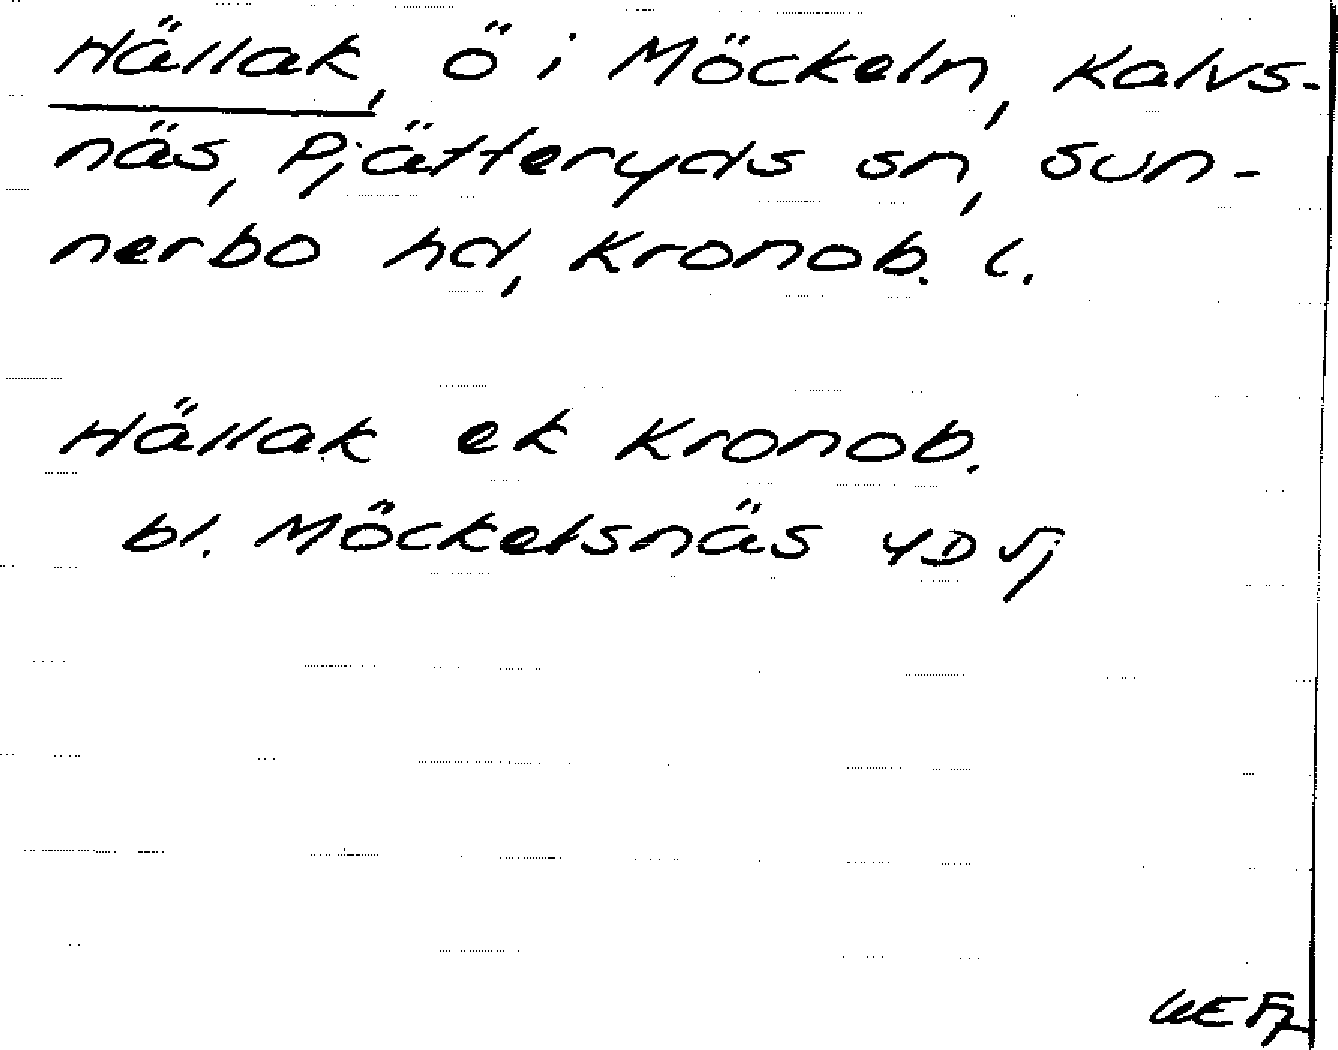 Hällak, ö i Möckeln, Kalvs-
näs, Pjätteryds sn, Sun-
nerbo hd, Kronob. l.
Hällak ek Kronob.
bl. Möckelsnäs 4D Vj